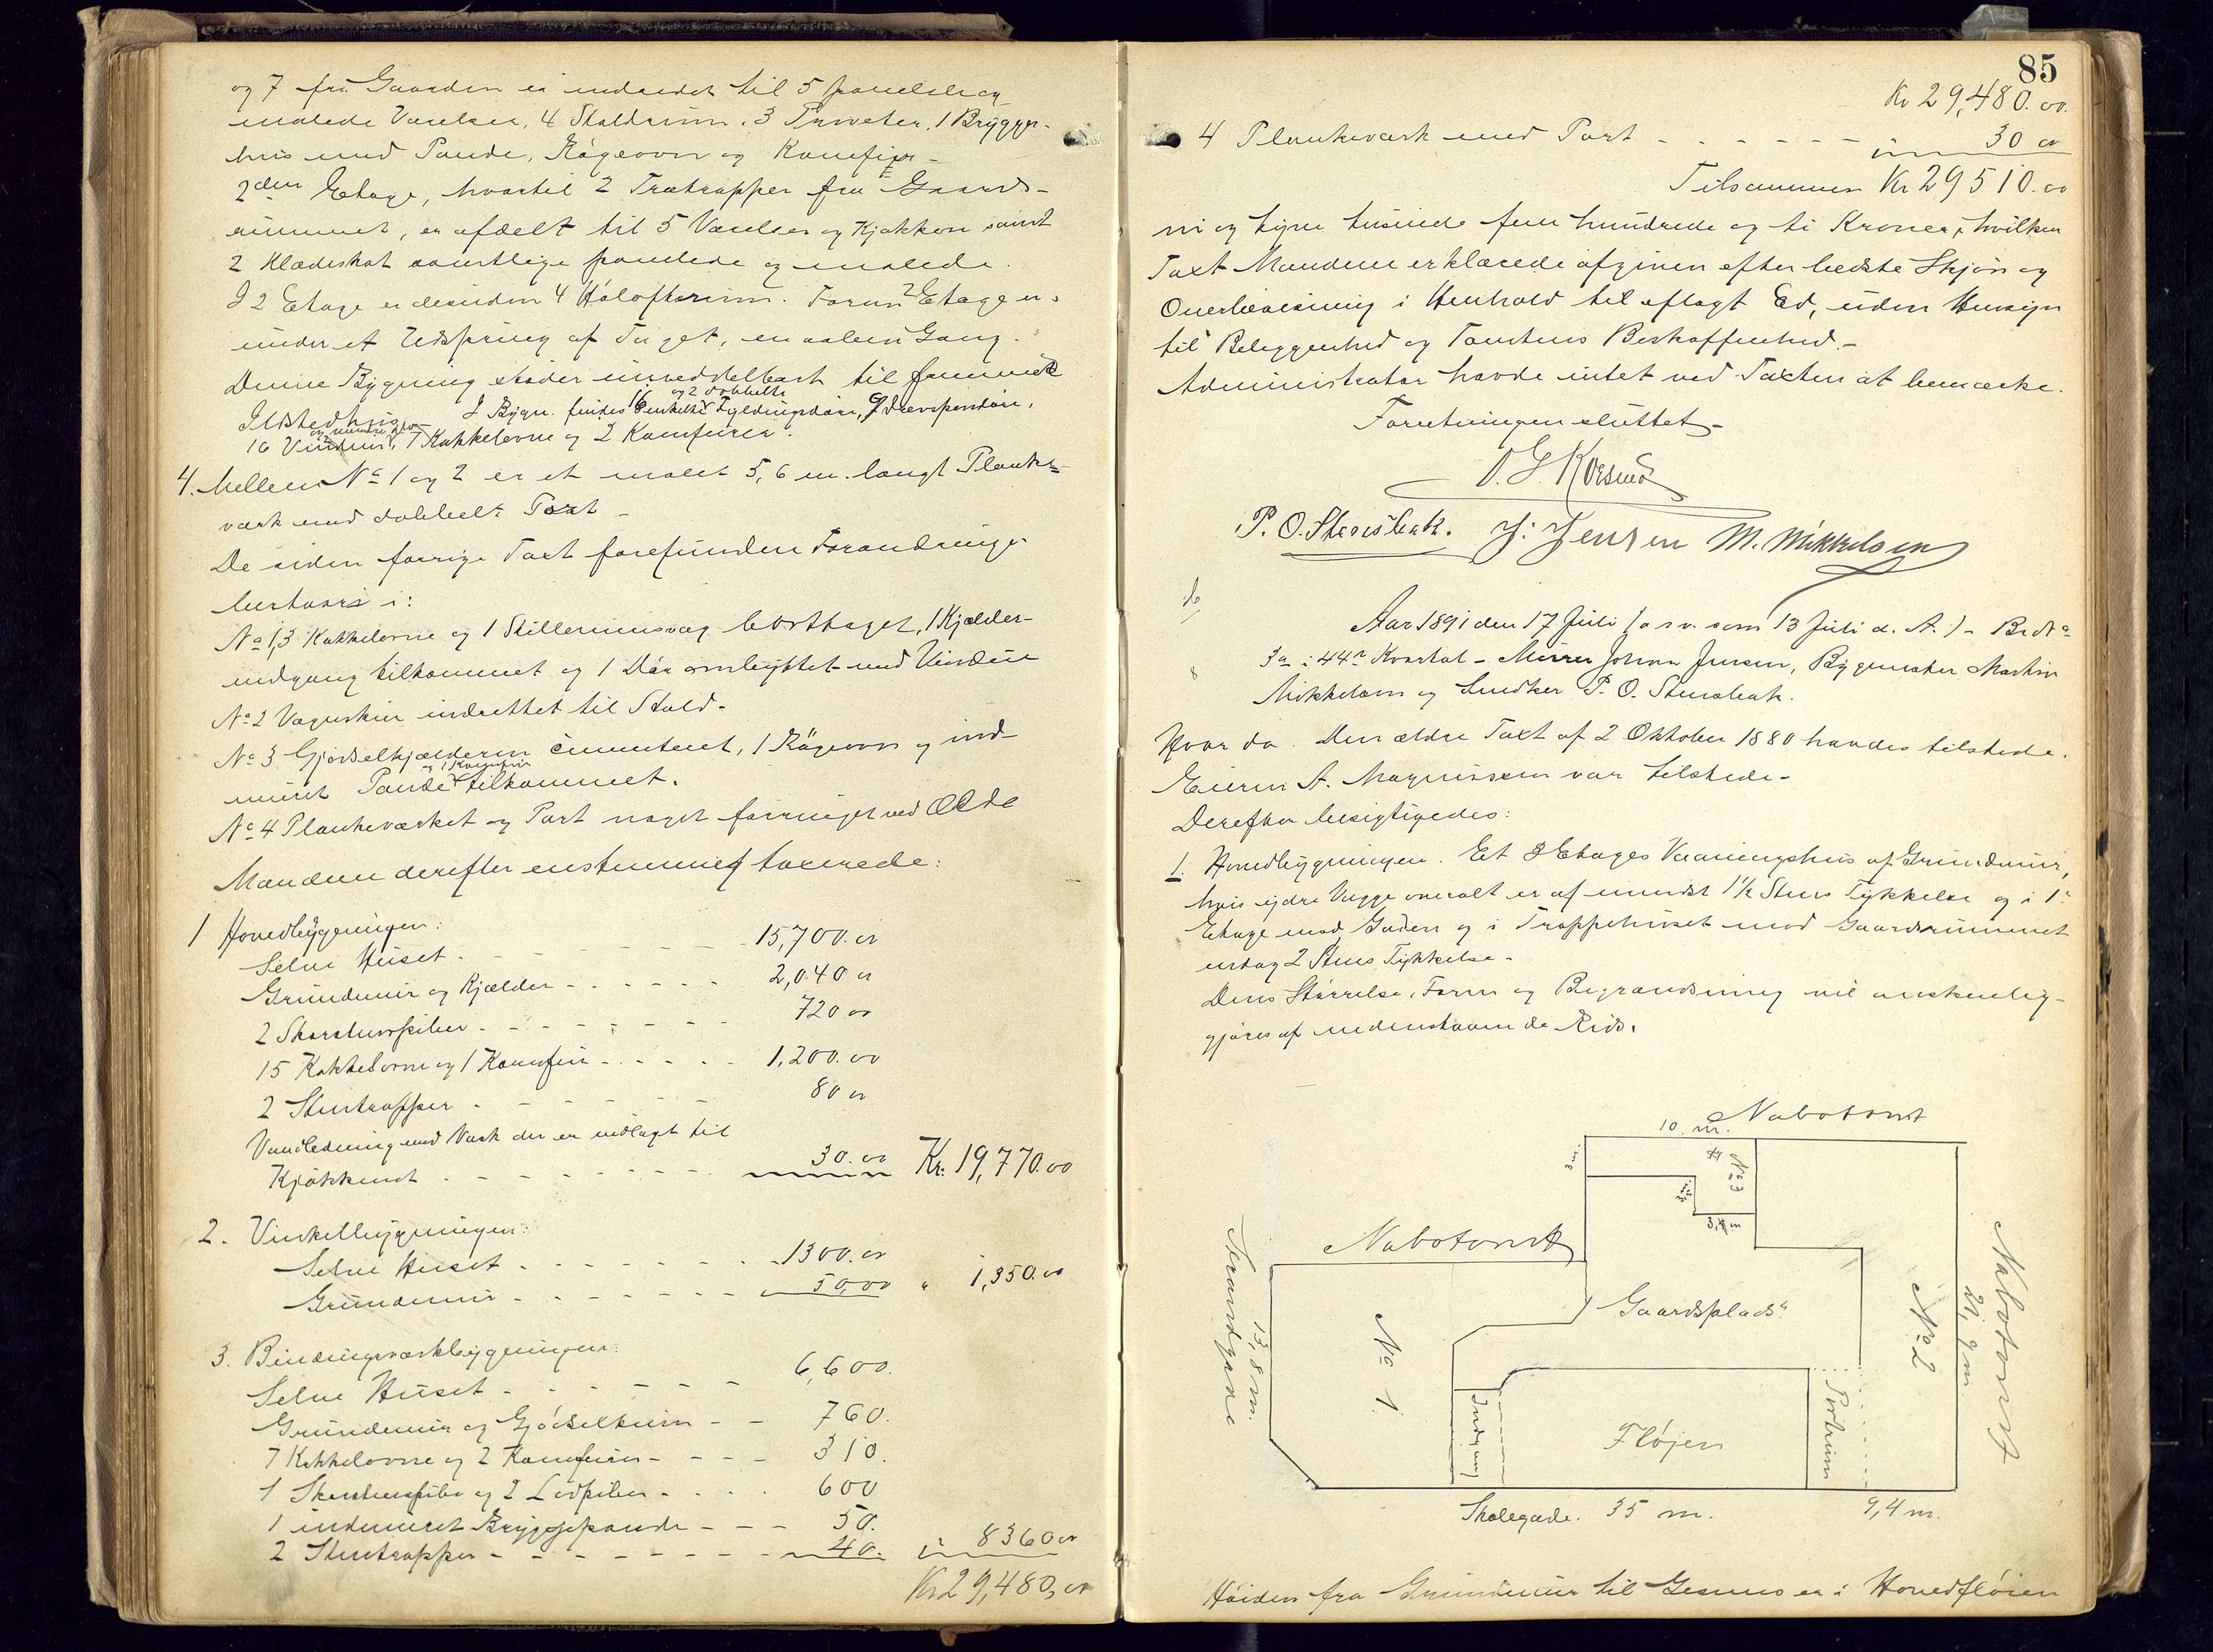 og 7 fra Gaarden er indredet til 5 panelede og
malede Værelser, 4 Staldrum, 3 Priveter, 1 Brygger-
hus med Pande, Rögeovn og Komfyr -
2den Etage, hvortil 2 Trætrapper fra Gaards-
rummet, er afdelt til 5 Værelser og Kjøkken samt
2 Klædeskot samtlige panelede og malede.
I 2 Etage er desuden 4 Höloftsrum. Foran 2 Etage er,
under et Udspring af Taget, en aaben Gang.
Denne Bygning støder umiddelbart til fremmed
Ildstedhus. I Bygn. findes 16 enkelte og 2 dobbelte Fyldingsdøre, 9 Drevspendøre,
16 Vinduer, 7 Kakkelovne og 2 Komfurer.
4. Mellem No 1 og 2 er et malet 5,6 m. langt Planke-
værk med dobbelt Port -
De siden forrige Taxt forefundne Forandringer
bestaar i:
No 1, 3 Kakkelovne og 1 Skillerumsvæg borttaget, 1 Kjælder-
nedgang tilkommet og 1 Dør ombyttet med Vindue
No 2 Vognskur indrettet til Stald -
No 3 Gjødselkjælderen cementeret, 1 Rögeovn og ind-
muret Pande og 1 Komfur tilkommet.
No 4 Plankeværket og Port noget forringet ved Ælde
Mændene derefter enstemmig taxerede:
1 Hovedbygningen:
Selve Huset - - - 15,700.00
Grundmur og Kjælder - - - 2,040 00
2 Skorstenspiber - - - 720 00
15 Kakkelovne og 1 Komfur - - - 1,200.00
2 Stentrapper - - - 80 00
Vandledning med Vask der er indlagt til
Kjøkkenet - - - 30.00 Kr. 19,770.00
2. Vinkelbygningen:
Selve Huset - - - 1300.00
Grundmur - - - 50,00 " 1,350.00
3. Bindingsværkbygningen:
Selve Huset - - - 6,600.
Grundmur og Gjødselkum - - 760.
7 Kakkelovne og 2 Komfurer - - - 310.
1 Skorstenspibe og 2 Lødpiber - - - 600
1 indmuret Bryggepande - - - 50.
2 Stentrapper - - - 40. " 8360 00
Kr 29,480,00
85
Kr 29,480.00.
4 Plankeværk med Port - - - " 30 00
Tilsammen Kr 29510.00
ni og tyve tusinde fem hundrede og ti Kroner, hvilken
Taxt Mændene erklærede afgiven efter bedste Skjøn og
Overbevisning i Henhold til aflagt Ed, uden Hensyn
til Beliggenhed og Tomtens Beskaffenhed. -
Administrator havde intet ved Taxten at bemærke.
Forretningen sluttet -
O. G. Korsmo
P. O. Stensbak. J. Jensen M. Mikkelsen
Aar 1891 den 17 Juli (o s v. som 13 Juli d. A.) - Br. No
3a i 44n Kvartal - Murer Johan Jensen, Bygmester Martin
Mikkelsen og Snedker P. O. Stensbak.
Hvor da. Den ældre Taxt af 2 Oktober 1880 havdes tilstede.
Eieren A. Magnussen var tilstede -
Derefter besigtigedes:
1. Hovedbygningen. Et 2 Etages Vaaningshus af Grundmur,
hvis ydre Vægge overalt er af mindst 1 1/2 Stens Tykkelse og i 1.
Etage mod Gaden og i Trappehuset mod Gaardsrummet
endog 2 Stens Tykkelse -
Dens Størrelse, Form og Begrændsning vil anskuelig-
gjøres af nedenstaaende Rids.
Nabotomt
10. m.
3 m.
4
No 3
3,4 m
Nabotomt
Strandgade
13,8 m.
No 1.
Gaardsplads
No 2
21,9 m
Nabotomt
Indgang
Fløjen
Portrum
Skolegade. 35 m.
9,4 m.
Høiden fra Grundmur til Gesims er i Hovedfløien